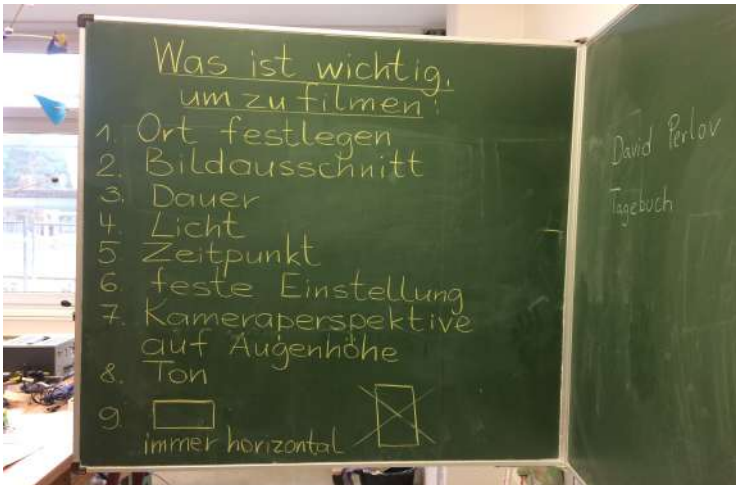 Was ist wichtig,
um zu filmen:
1. Ort festlegen
2. Bildausschnitt
3. Dauer
4. Licht
5 Zeitpunkt
6 feste Einstellung
7. Kameraperspektive
auf Augenhöhe
8. Ton
9.
immer horizontal
David Perlov
Tagebuch